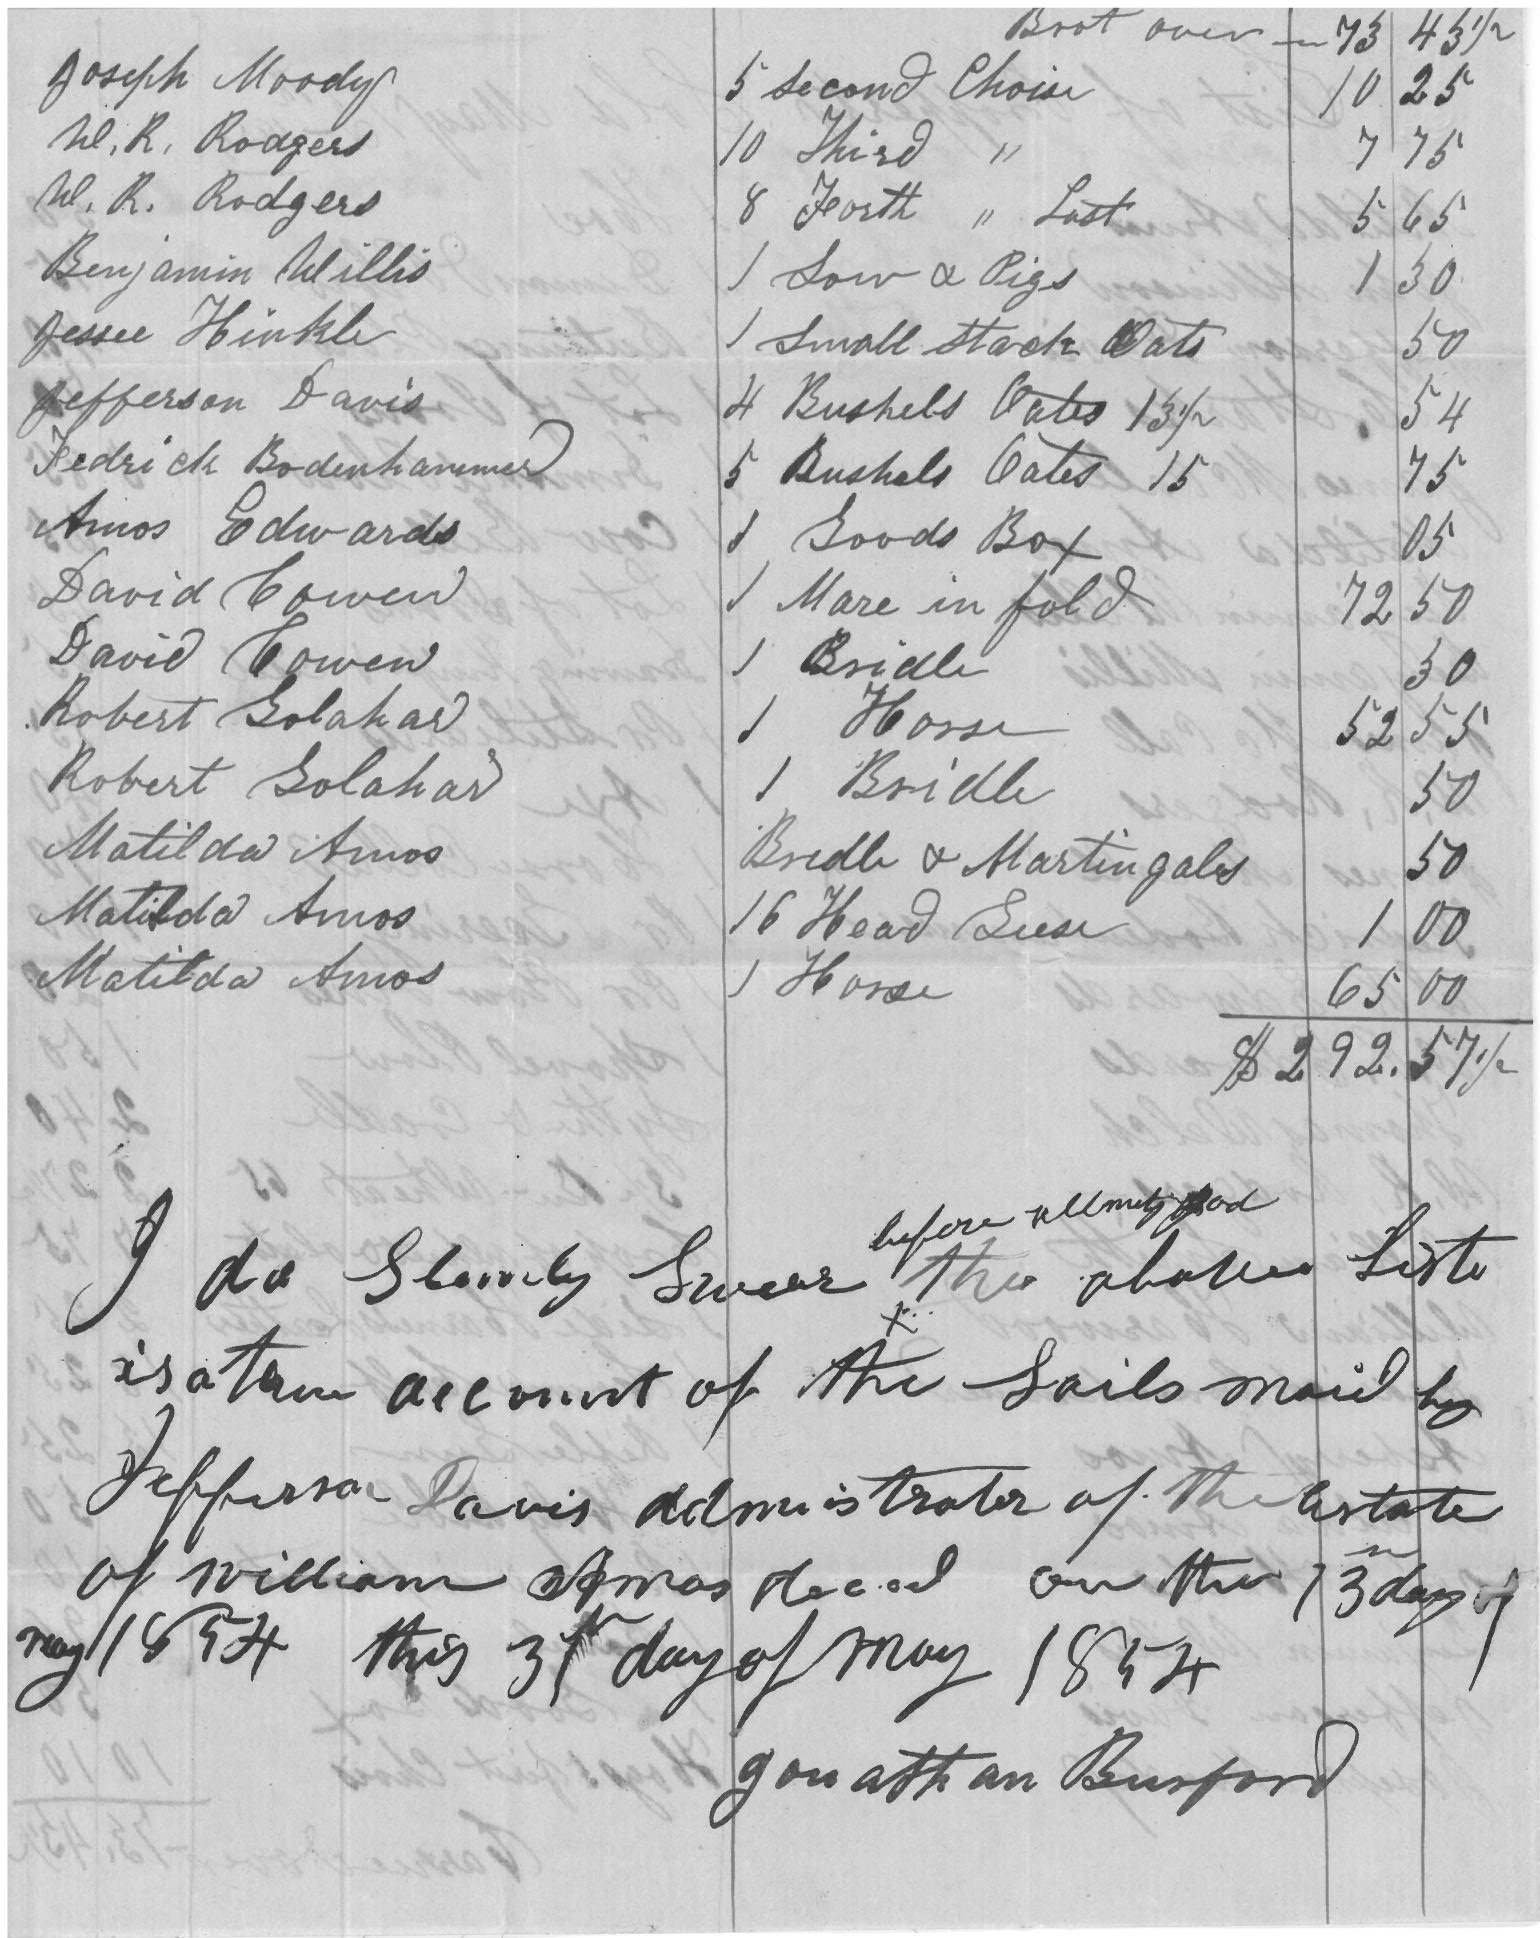 Brot over — 73 43½
Joseph Moody 5 Second Choise 10 25
W. R. Rodgers 10 Third " 7 75
W. R. Rodgers 8 Forth " Last 5 65
Benjamin Willis 1 Sow & Pigs 1 30
Jessee Hinkle 1 Small Stack Oats 50
Jefferson Davis 4 Bushels Oates 13½ 54
Fedrick Bodenhammer 5 Bushels Oates 15 75
Amos Edwards 1 Goods Box 05
David Cowen 1 Mare in fold 72 50
David Cowen 1 Bridle 30
Robert Golahar 1 Horse 52 55
Robert Golahar 1 Bridle 50
Matilda Amos Bredle & Martingales 50
Matilda Amos 16 Head Geese 1 00
Matilda Amos 1 Horse 65 00
$292.57½
before allmity god
I do Slemly Swear the above Liste
x
is a true account of the Sails maid by
Jefferson Davis admistrator of the Estate
of William Amos deced on the 13 day of
may 1854 this 31st day of May 1854
Jonathan Burford